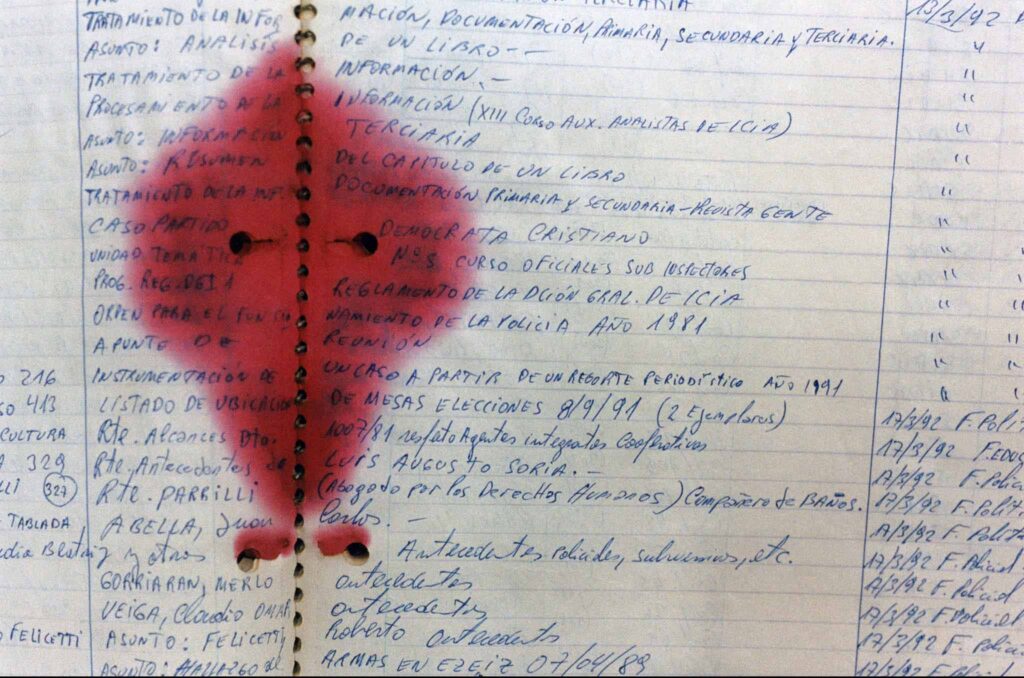 TERCIARIA 13/3/92
TRATAMIENTO DE LA INFORMACIÓN, DOCUMENTACIÓN, PRIMARIA, SECUNDARIA Y TERCIARIA. "
ASUNTO: ANALISIS DE UN LIBRO-- "
TRATAMIENTO DE LA INFORMACIÓN.- "
PROCESAMIENTO A LA INFORMACIÓN (XIII CURSO AUX. ANALISTAS DE ICIA) "
ASUNTO: INFORMACIÓN TERCIARIA "
ASUNTO: RESUMEN DEL CAPITULO DE UN LIBRO "
TRATAMIENTO DE LA INF DOCUMENTACIÓN PRIMARIA Y SECUNDARIA-REVISTA GENTE "
CASO PARTIDO DEMOCRATA CRISTIANO "
UNIDAD TEMÁTICA Nº5 CURSO OFICIALES SUB INSPECTORES "
PROG. REG. DGI 1 REGLAMENTO DE LA DCIÓN GRAL. DE ICIA "
ORDEN PARA EL FUNCIONAMIENTO DE LA POLICIA AÑO 1981 "
APUNTE DE REUNIÓN "
216 INSTRUMENTACIÓN DE UN CASO A PARTIR DE UN REPORTE PERIODÍSTICO AÑO 1991 "
413 LISTADO DE UBICACION DE MESAS ELECCIONES 8/9/91 (2 Ejemplares) 17/3/92 F. Polit
CULTURA Rte. Alcances Dto. 1007/81 respeto Agentes integrantes Cooperativas 17/3/92 F. EDUC
329 Rte. Antecedentes de LUIS AUGUSTO SORIA.- 17/3/92 F. Polic
LLI 327 Rte. PARRILLI (Abogado por los Derechos Humanos) Compañero de BAÑOS. 17/3/92 F. Polit
TABLADA, ABELLA, Juan Carlos.- 17/3/92 F. Polit
dia Beatriz y otros Antecedentes policiales, subversivos, etc. 17/3/92 F. Policial
GORRIARAN, MERLO antecedentes 17/3/92 F. Policial
VEIGA, Claudio OMAR antecedentes 17/3/92 F. Policial
FELICETTI ASUNTO: FELICETTI, Roberto antecedentes 17/3/92 F. Policial
ASUNTO: HALLAZGO de ARMAS EN EZEIZ 07/04/89 17/3/92 F. Policial